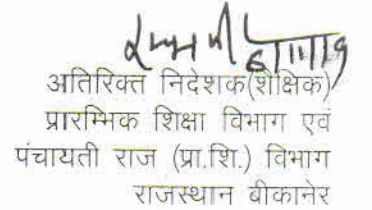 अतिरिक्त निदेशक(शैक्षिक)
प्रारम्भिक शिक्षा विभाग एवं
पंचायती राज (प्रा.शि.) विभाग
राजस्थान बीकानेर